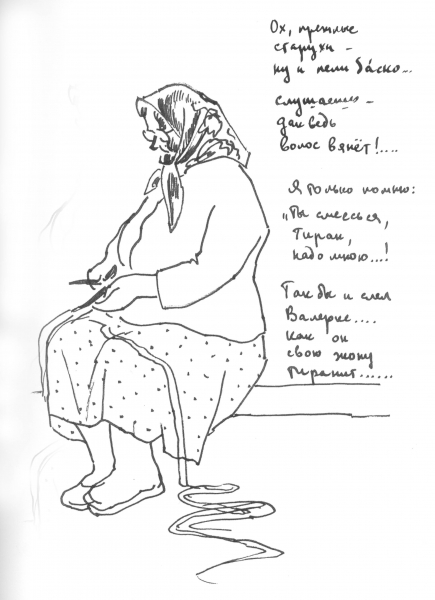 Ох, прежные
старухи –
ну и пели ба́ско...
слушаешь –
дак ведь
волос вянет!....
Я только помню:
„Ты смеесься,
Тиран,
надо мною...!
Так бы и спел
Валерке....
как он
свою жону
тиранит......